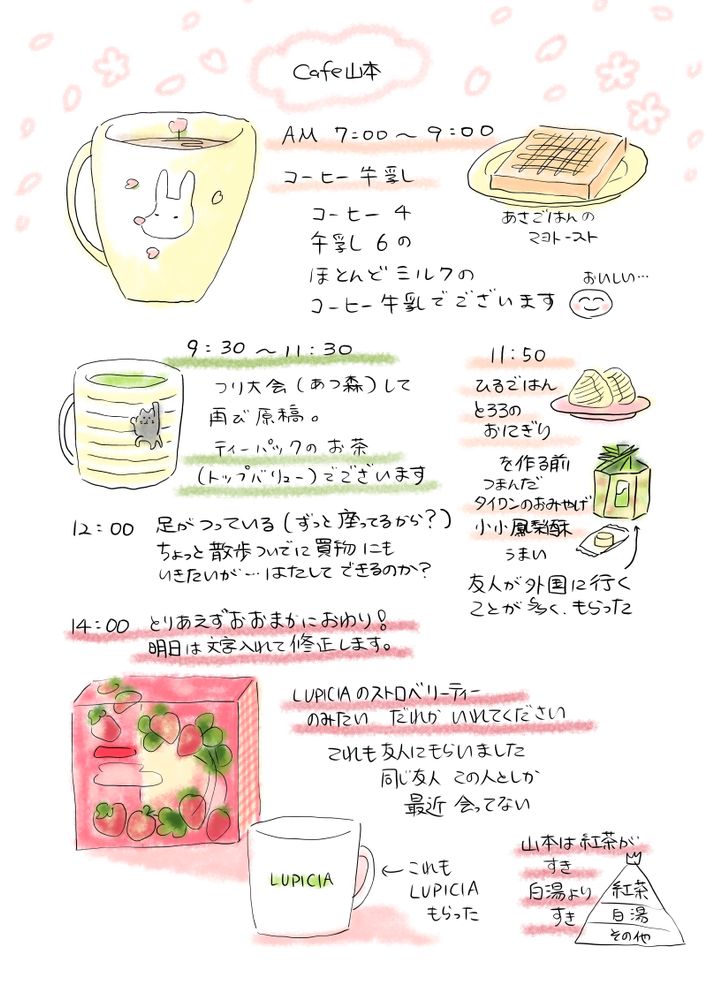 Cafe山本
AM 7:00～9:00
コーヒー牛乳
コーヒー 4
牛乳し 6の
ほとんどミルクの
コーヒー牛乳でございます
あさごはんの
マヨトースト
おいしい…
9:30～11:30
つり大会(あつ森)して
再び原稿。
ティーパックのお茶
(トップバリュー)でございます
11:50
ひるごはん
とろろの
おにぎり
を作る前
つまんだ
タイワンのおみやげ
小小鳳梨酥
うまい
友人が外国に行く
ことが多く、もらった
12:00 足がつっている(ずっと座ってるから?)
ちょっと散歩ついでに買物にも
いきたいが…はたしてできるのか?
14:00 とりあえずおおまかにおわり!
明日は文字入れて修正します。
LUPICIAのストロベリーティー
のみたい だれか いれてください
これも友人にもらいました
同じ友人 この人としか
最近 会ってない
LUPICIA
←これも
LUPICIA
もらった
山本は紅茶が
すき
白湯より
すき
紅茶
白湯
その他